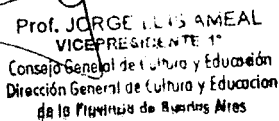 Prof. JORGE LUIS AMEAL
VICEPRESIDENTE 1°
Consejo General de Cultura y Educación
Dirección General de Cultura y Educacion
de la Provincia de Buenos Aires